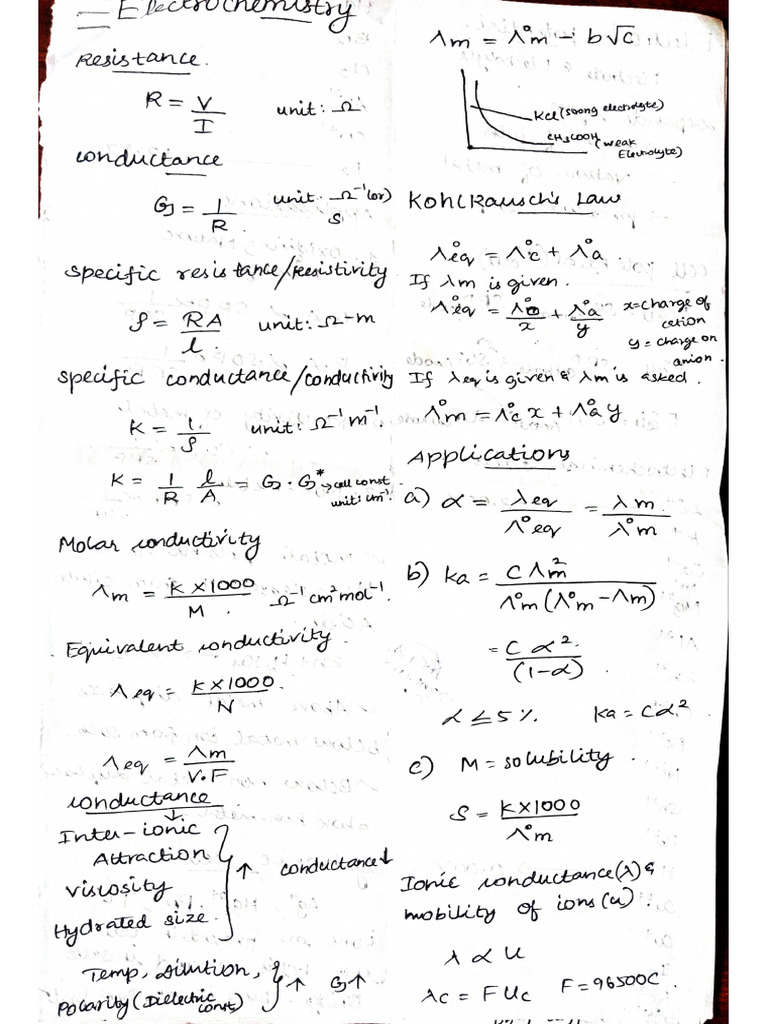 Electrochemistry
Resistance.
R = V/I unit: Ω
Conductance
G = 1/R unit: Ω⁻¹ (or) S
Specific resistance/resistivity
ρ = RA/l. unit: Ω-m
Specific conductance/conductivity
K = 1/ρ unit: Ω⁻¹ m⁻¹
K = 1/R l/A = G · G* → cell const unit: cm⁻¹
Molar conductivity
Λm = K × 1000/M. Ω⁻¹ cm² mol⁻¹.
Equivalent conductivity
Λeq = K × 1000/N.
Λeq = Λm/V.F
Conductance
Inter-ionic
Attraction
Viscosity
Hydrated size.
↑ conductance↓
Temp, Dilution,
Polarity (Dielectric const)
↑ G↑
Λm = Λ°m - b√c
KCl (Soong electrolyte)
CH₃COOH (weak Electrolyte)
Kohlrausch's Law
Λ°eq = Λ°c + Λ°a.
If λm is given.
Λ°eq = Λ°c/x + Λ°a/y x=charge of cation
y = charge on anion.
If λeq is given & λm is asked.
Λ°m = Λ°c x + Λ°a y
Applications
a) α = λeq/Λ°eq = λm/λ°m
b) ka = C Λm²/Λ°m (Λ°m - Λm)
= C α²./(1-α)
α ≤ 5%. ka = Cα²
c) M = solubility.
S = K × 1000/Λ°m
Ionic conductance (λ) &
mobility of ions (u).
λ ∝ U
λc = F Uc F = 96500C.